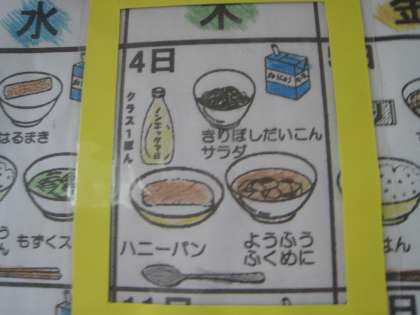 水
木
金
4日
クラス1ぽん
ノンエッグマヨ
きりぼしだいこん
サラダ
はるまき
もずくス
ハニーパン
ようふう
ふくめに
はん
11日